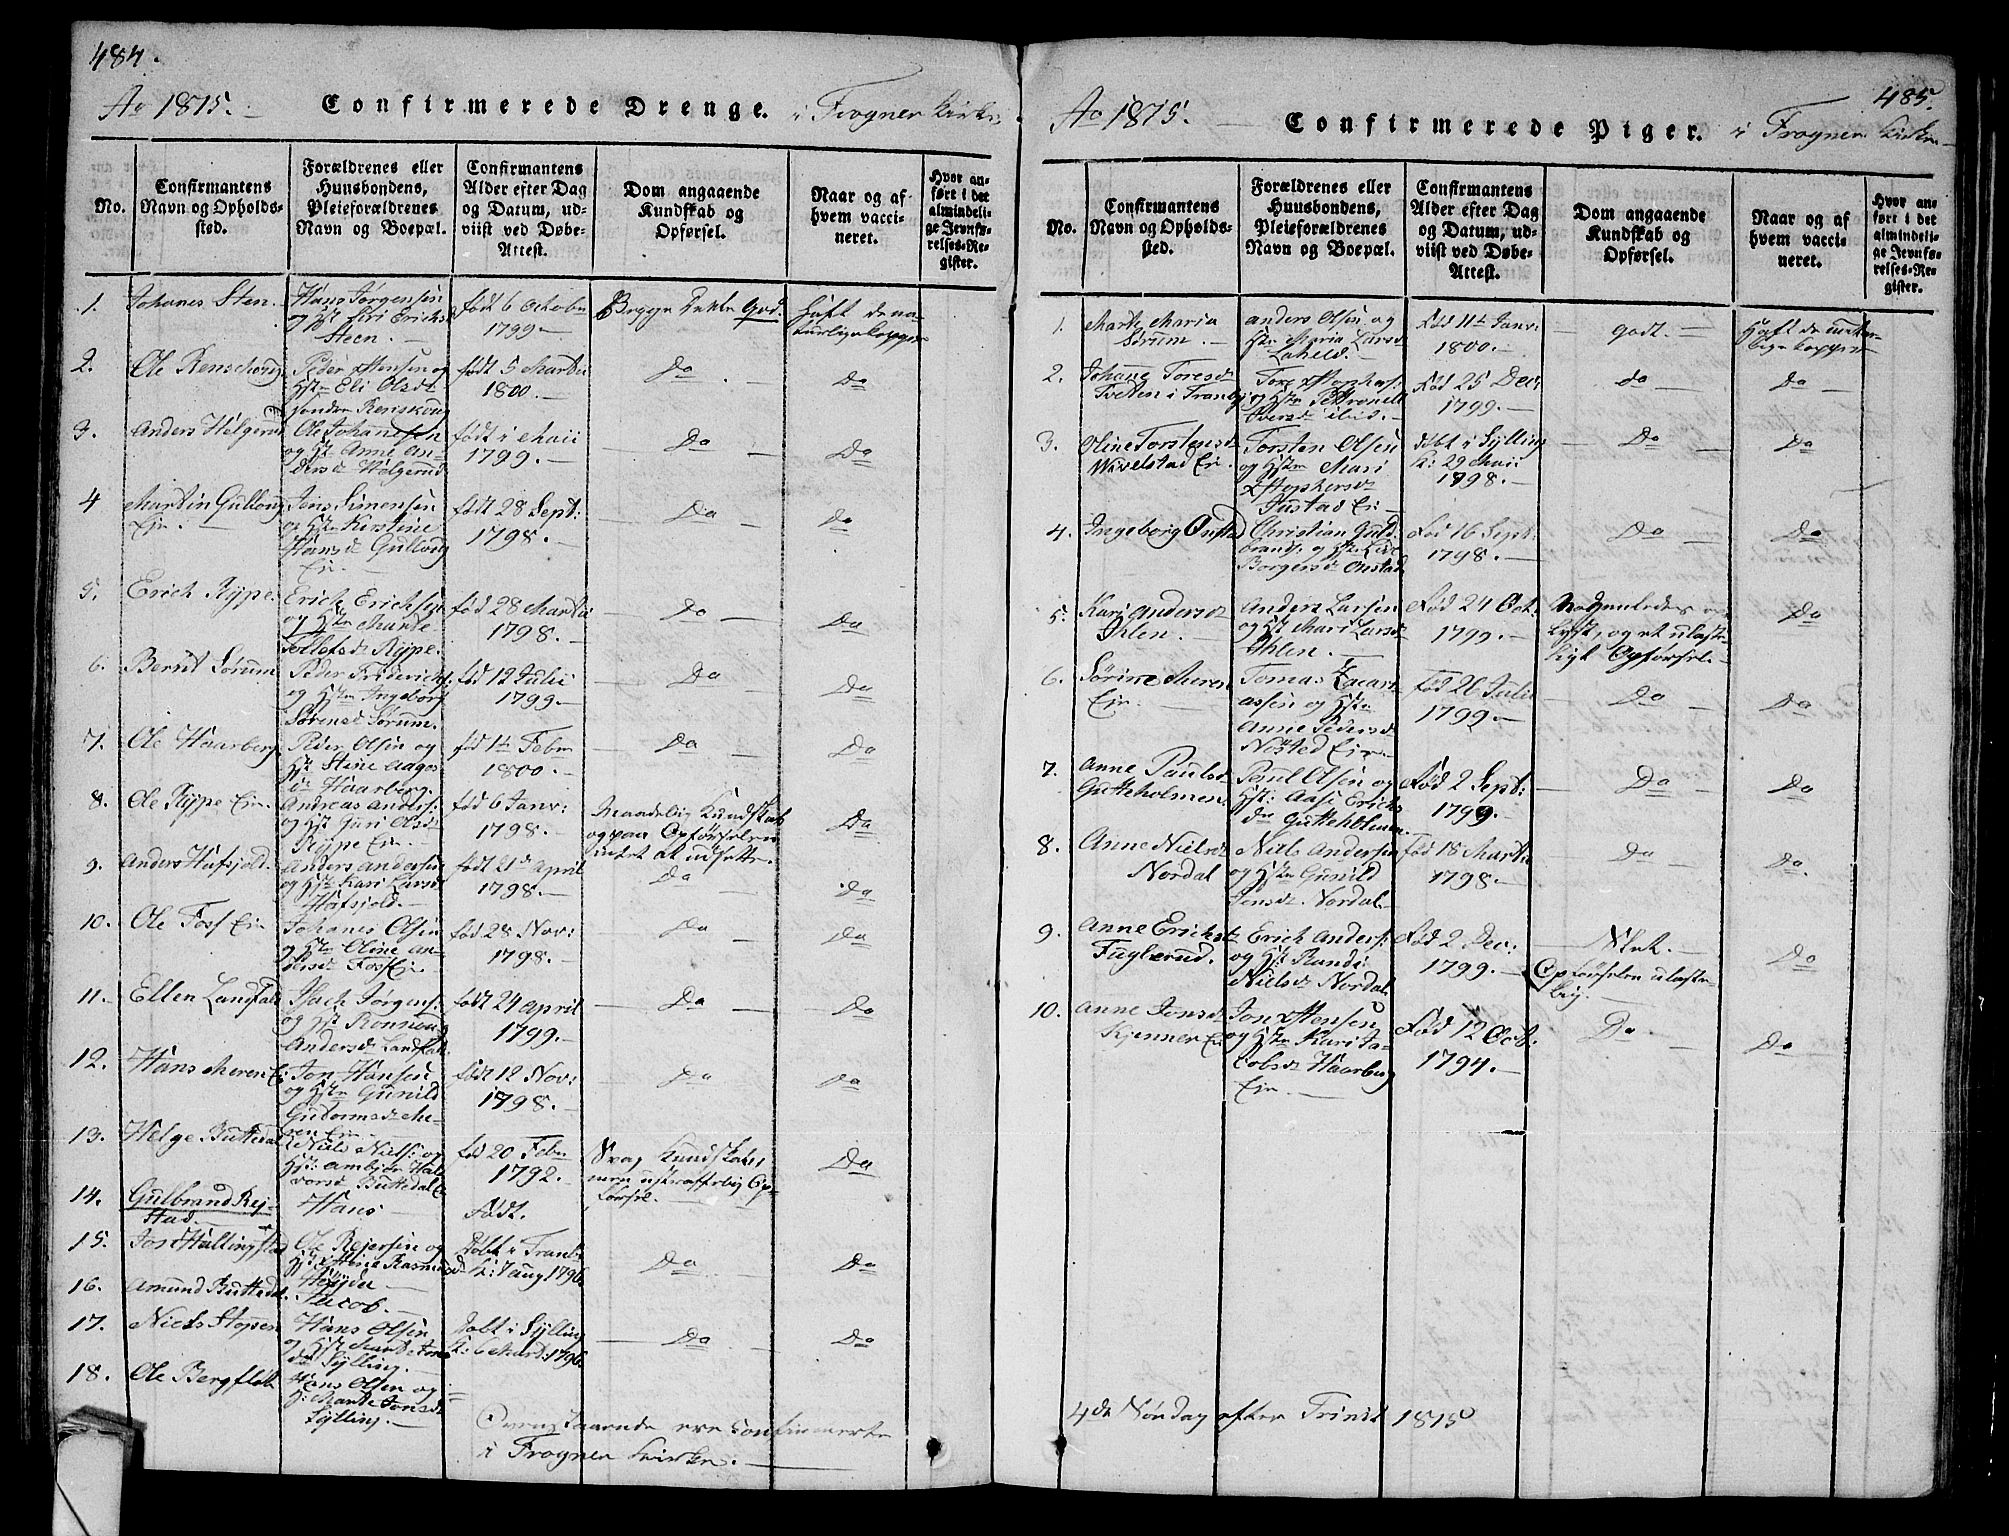 484.
Ao 1815. Confirmerede Drenge. i Frogner Kirke
No.
Confirmantens
Navn og Opholds-
sted.
Forældrenes eller
Huusbondens,
Pleieforældrenes
Navn og Boepæl.
Confirmantens
Alder efter Dag
og Datum, ud-
viist ved Døbe-
Attest.
Dom angaaende
Kundskab og
Opførsel.
Naar og af
hvem vacci-
neret.
Hvor an-
ført i det
almindeli-
ge Jevnfø-
relses-Re-
gister.
1.
Johanes Sten.
Hans Jørgensen
og Hst Siri Erichs
Steen.
født 6 Octobr
1799.
God.
Haft de na-
turlige kopper
2.
Ole Renschoug
Peder Hensen og
Hstr Eli Olsdr
født 5 Martii
1800.
Do
Do
3.
Anders Helgerud
Ole Johannesen
og Hst Anne An-
dersdr Helgerud
født i Maii
1799.
Do
Do
4
Martin Gulloug
Eje.
Jens Simensen
og Hstr Kirstine
Hansdr Gulloug
Eje.
født 28 Sept:
1798.
Do
Do
5.
Erich Rype.
Erich Erichsen
og Hstr Marte
Tollefsdr Rype.
fød 28 Martii
1798.
Do
Do
6.
Bernt Sørum
Peder Friderichs:
og Hstr Ingeborg
Sørensd Sørum.
fød 12 Julii
1799.
Do
Do
7.
Ole Haarberg
Peder Olsen og
Hst Stine Aages
dr Haarberg.
fød 1te Febr
1800.
Do
Do
8.
Ole Rype Eje.
Andreas Anders:
og Hst Guri Olsdr
Rype Eje.
fød 6 Janv:
1798.
Maadelig Kundskab
og paa Opførselen
intet at udsette.
Do
9.
Anders Hafsjold.
Anders Andersen
og Hstr Kari Larsdr
Hafsjold.
født 21de April
1798.
Do
Do
10.
Ole Foss Eje
Johanes Olsen
og Hstr Oline An-
dersdr Foss Eje
fød 28 Nov:
1798.
Do
Do
11.
Ellen Landfald
Isach Jørgens:
og Hst Ronnoug
Andersdr Landfald.
født 24 April
1799.
Do
Do
12.
Hans Meren Ej
Jon Hansen
og Hstr Gunild
Gudormsdr Me-
ren Eje
født 12 Nov:
1798.
Do
Do
13.
Helge Buttedal
Niels Niels: og
Hst: Ambjør Hal-
vorsd Buttedal Ej
fød 20 Febr
1792.
Svag Kundskab,
men ustraffelig Op-
førsel.
Do
14.
Gulbrand Rej-
stad
Hans
Født.
15.
Jon Hallingstad
Ole Rejersen og
Døbt i Tranbÿ
K: 7 Aug 1796.
Do
Do
16.
Amund Buttedal.
Jacob.
17.
Niels Stopen
Hans Olsen
Sylling.
Døbt i Sylling
K: 6 Mard: 1796.
Do
Do
18.
Ole Bergfløth
Hans Olsen og
H: Marthe Jonsdr
Sylling.
Ovenstaaende ere Confirmerte
i Frogner Kirke.
485.
Ao 1815. Confirmerede Piger. i Frogner Kirke
No.
Confirmantens
Navn og Opholds-
sted.
Forældrenes eller
Huusbondens,
Pleieforældrenes
Navn og Boepæl.
Confirmantens
Alder efter Dag
og Datum, ud-
viist ved Døbe-
Attest.
Dom angaaende
Kundskab og
Opførsel.
Naar og af
hvem vacci-
neret.
Hvor an-
ført i det
almindeli-
ge Jevnfø-
relses-Re-
gister.
1.
Marte Maria
Sørum.
Anders Olsen og
Hstr Maria Larsdr
Laheld.
Fød 11te Janv:
1800.
godt.
Haft de natur-
lige kopper
2.
Johane Toresdr
Tveten i Tranby
og Hstr Pettronell
Fød 25 Dec:
1799.
do
Do
3.
Oline Torstensdr
Wivelstad Eje.
Torsten Olsen
og Hstr Mari
Xstophersdr
Justad Eje
døbt i Sylling
K: 29 Maii
1798.
Do
Do
4.
Ingeborg Onstad
Christian Guld-
brands. og Hstr Lise
Borgersdr Onstad
Fød 16 Sept:
1798.
Do
Do
5.
Kari Andersdr
Ihlen.
Anders Larsen
og Hst Mari Larsdr
Ihlen.
Fød 24 Oct.
1799.
Nogenledes op
lyst, og et ulaste-
ligt Opførsel.
Do
6.
Sørine Meren
Eje.
Tomas Zacari-
assen og Hstr
Anne Pedersdr
Nøsted Eje.
fød 26 Julii
1799.
Do
Do
7.
Anne Paulsd
Gutteholmen.
Poul Olsen og
Hst: Aase Erichs
dr Gutteholmen.
Fød 2 Sept:
1799.
Do
Do
8.
Anne Nielsdr
Nordal
Niels Andersen
og Hstr Gunild
Jensdr Nordal.
fød 18 Martii
1798.
Do
Do.
9.
Anne Erichsdr
Fuglerud.
Erich Anders:
og Hst: Randi
Nielsdr Nordal
Fød 2 Dec:
1799.
Slet.
Opførselen ulaste-
lig.
Do
10.
Anne Jonsdr
Kjenner Ej
Jon Xstensen
og Hstr Kari Ja-
cobsdr Haarberg
Eje.
Fød 12 Oct.
1794.
Do
Do
4de Søndag efter Trinit 1815